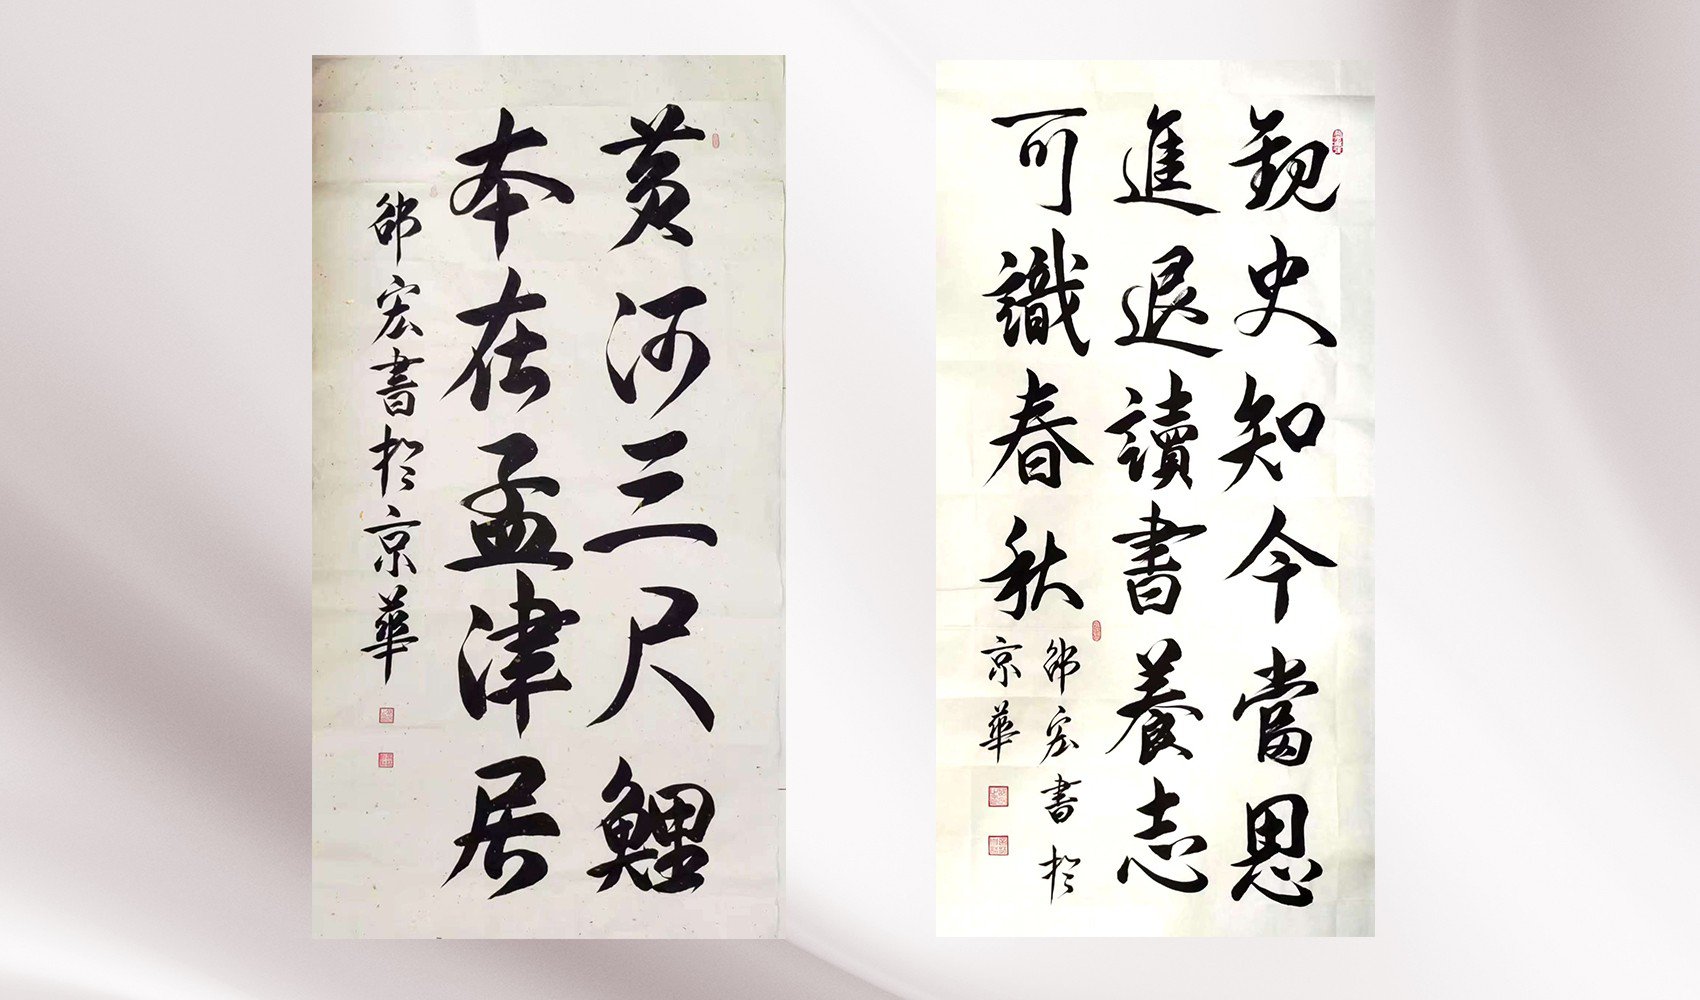 黄河三尺鯉
本在孟津居
邵宏書於京華
觀史知今當思
進退讀書養志
可識春秋
邵宏書於
京華